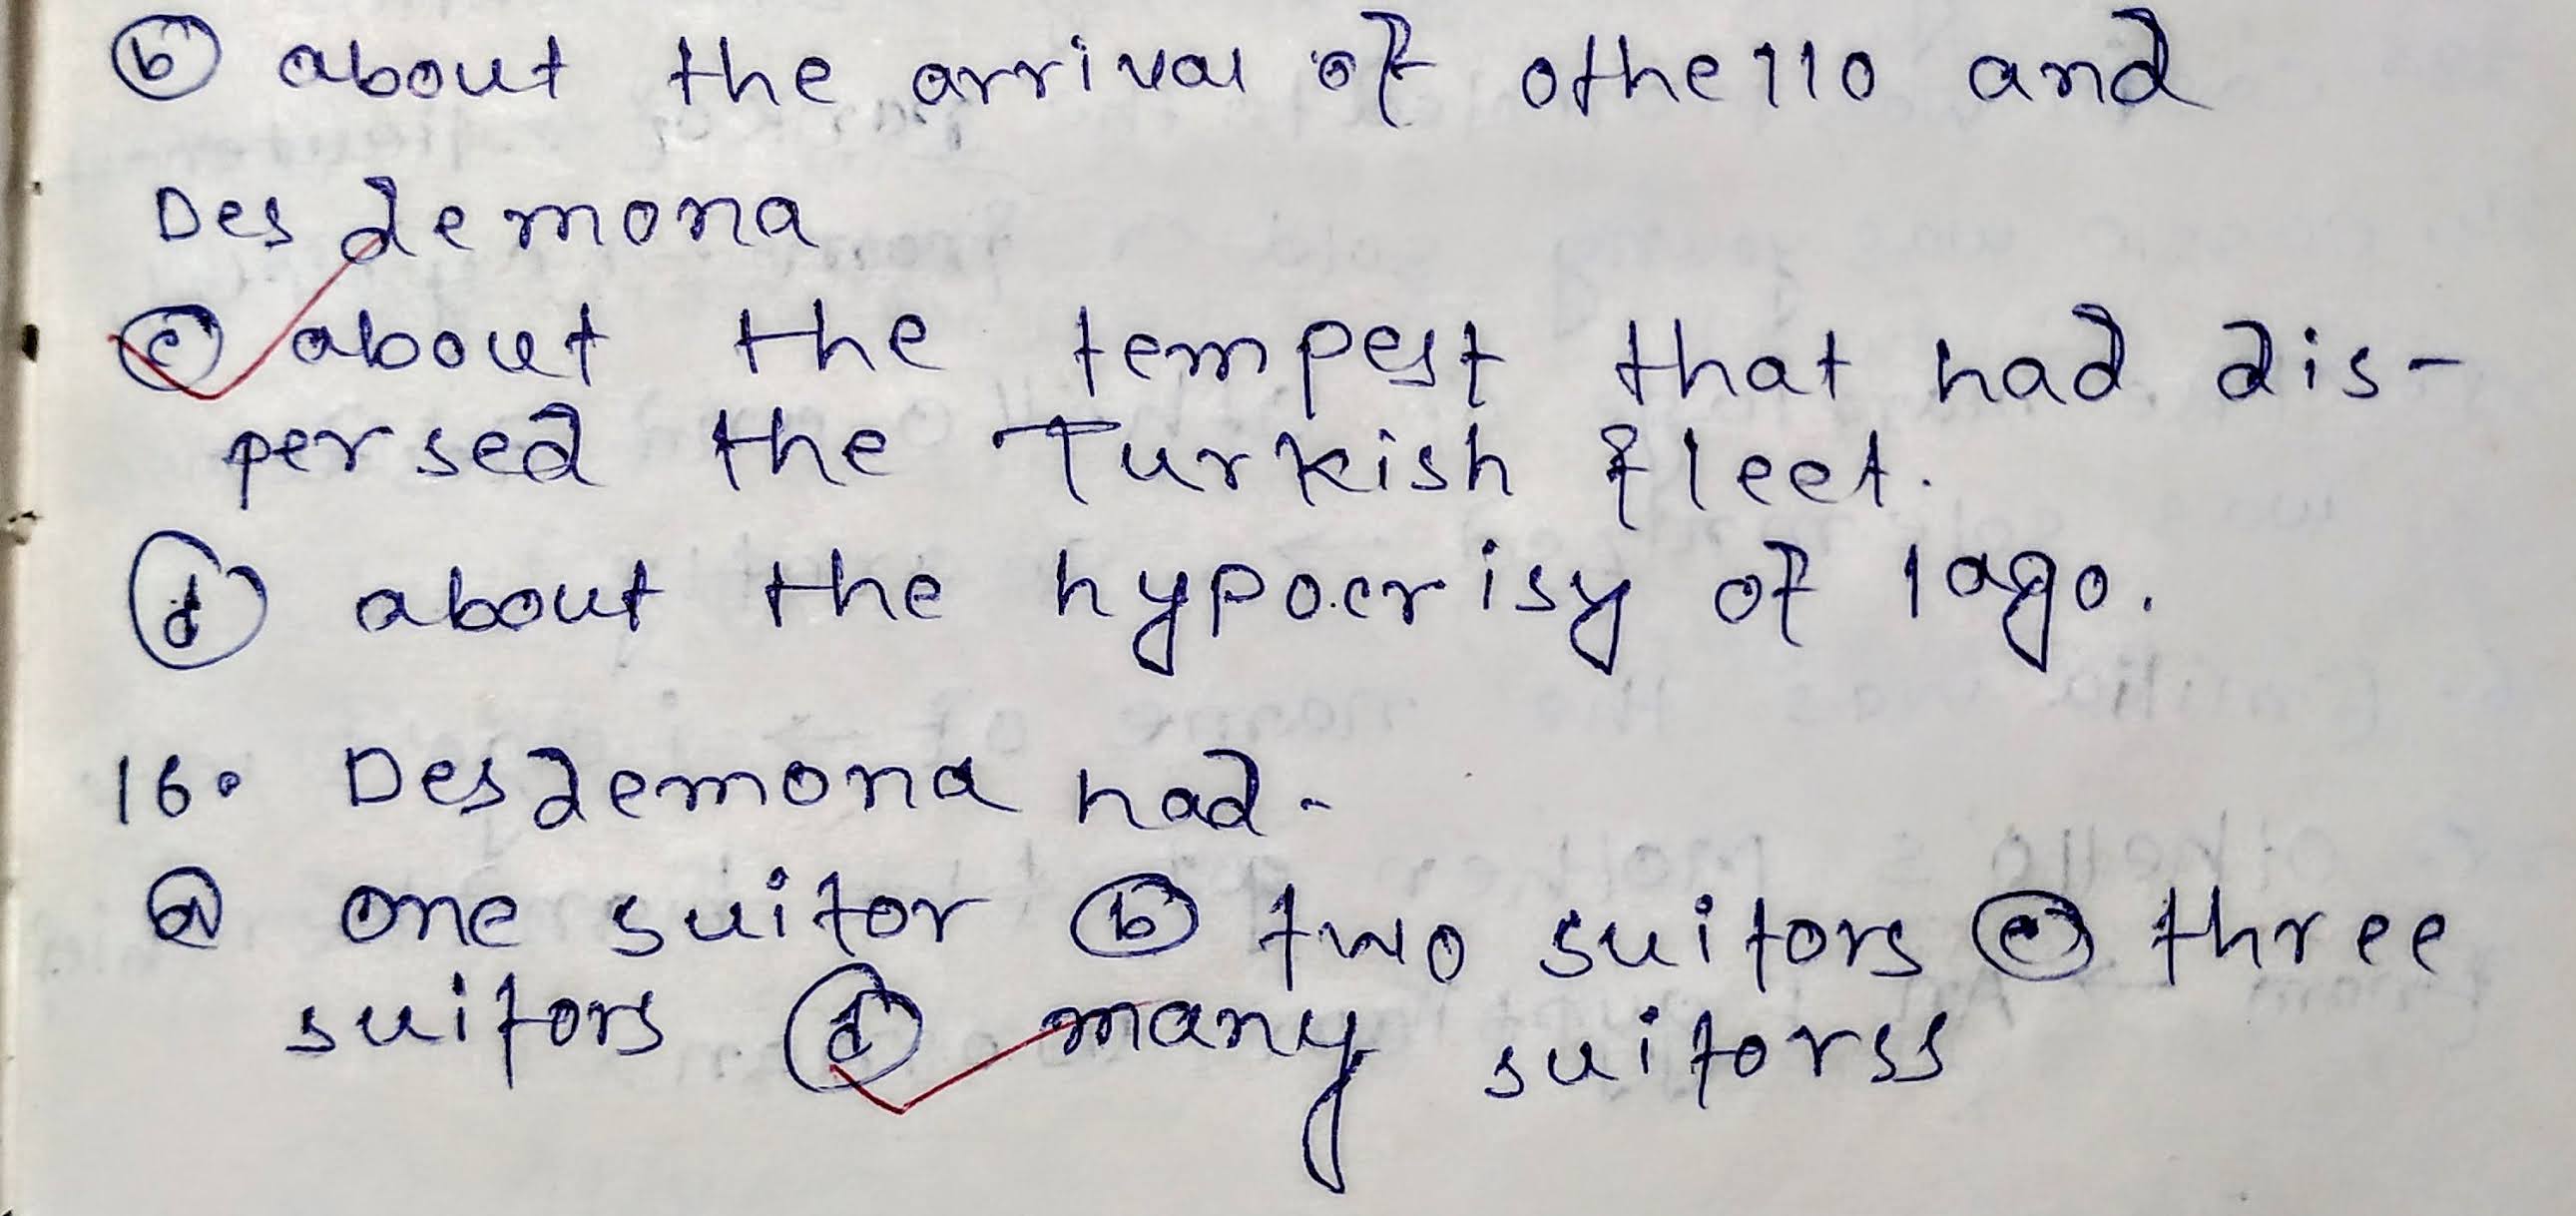 ⓑ about the arrival of othello and
Desdemona
ⓒ about the tempest that had dis-
persed the Turkish fleet.
ⓓ about the hypocrisy of Iago.
16. Desdemona had-
ⓐ one suitor ⓑ two suitors ⓒ three
suitors ⓓ many suitorss